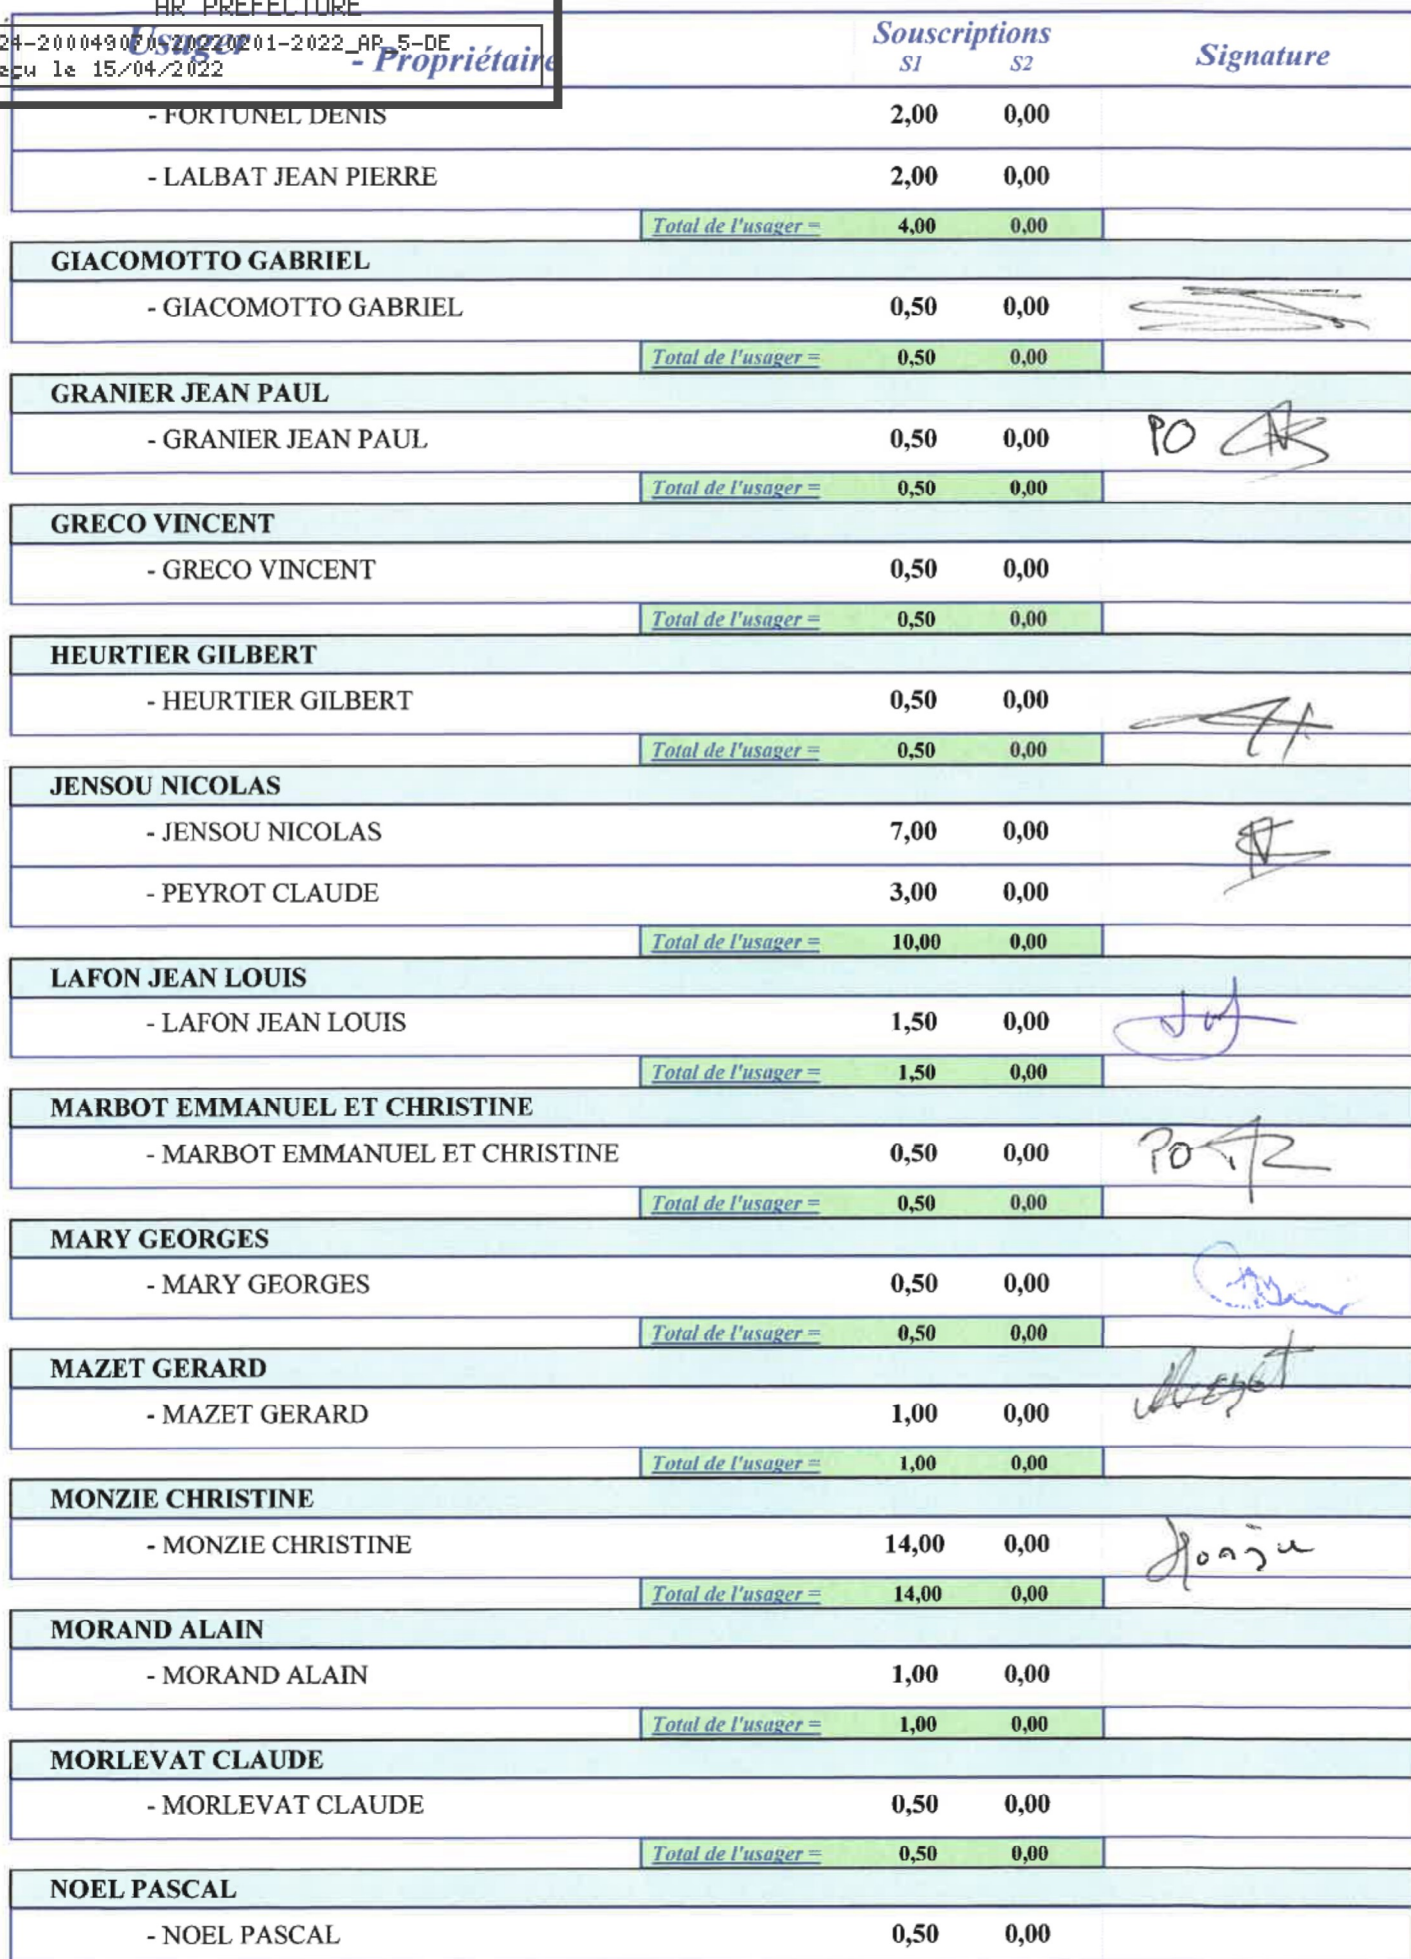 AR PREFECTURE
24-200049070-20220201-2022_AP_5-DE
eçu le 15/04/2022
Usager - Propriétaire Souscriptions Signature
S1 S2
- FORTUNEL DENIS 2,00 0,00
- LALBAT JEAN PIERRE 2,00 0,00
Total de l'usager = 4,00 0,00
GIACOMOTTO GABRIEL
- GIACOMOTTO GABRIEL 0,50 0,00
Total de l'usager = 0,50 0,00
GRANIER JEAN PAUL
- GRANIER JEAN PAUL 0,50 0,00 PO
Total de l'usager = 0,50 0,00
GRECO VINCENT
- GRECO VINCENT 0,50 0,00
Total de l'usager = 0,50 0,00
HEURTIER GILBERT
- HEURTIER GILBERT 0,50 0,00
Total de l'usager = 0,50 0,00
JENSOU NICOLAS
- JENSOU NICOLAS 7,00 0,00
- PEYROT CLAUDE 3,00 0,00
Total de l'usager = 10,00 0,00
LAFON JEAN LOUIS
- LAFON JEAN LOUIS 1,50 0,00
Total de l'usager = 1,50 0,00
MARBOT EMMANUEL ET CHRISTINE
- MARBOT EMMANUEL ET CHRISTINE 0,50 0,00 PO
Total de l'usager = 0,50 0,00
MARY GEORGES
- MARY GEORGES 0,50 0,00
Total de l'usager = 0,50 0,00
MAZET GERARD
- MAZET GERARD 1,00 0,00
Total de l'usager = 1,00 0,00
MONZIE CHRISTINE
- MONZIE CHRISTINE 14,00 0,00
Total de l'usager = 14,00 0,00
MORAND ALAIN
- MORAND ALAIN 1,00 0,00
Total de l'usager = 1,00 0,00
MORLEVAT CLAUDE
- MORLEVAT CLAUDE 0,50 0,00
Total de l'usager = 0,50 0,00
NOEL PASCAL
- NOEL PASCAL 0,50 0,00